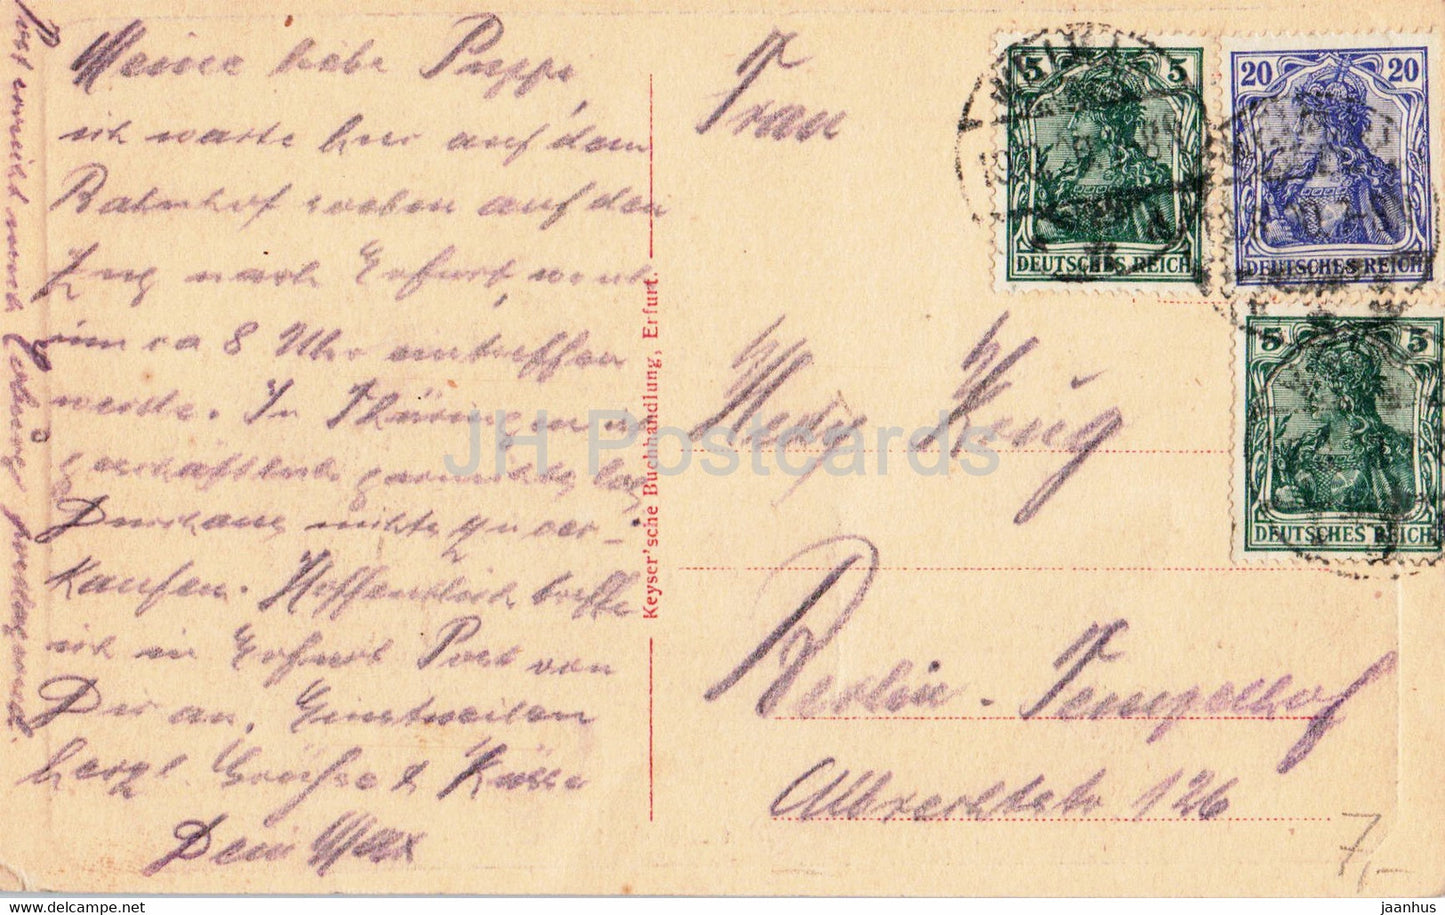 Meine liebe Puppe,
ich warte hier auf dem
Bahnhof soeben auf den
Zug nach Erfurt, wo ich
um ca 8 Uhr eintreffen
werde. In Thüringen ist
geschäftlich garnichts, bez.
Durchaus nichts zu ver-
kaufen. Hoffentlich treffe
ich in Erfurt Post von
Dir an. Einstweilen
herzl. Grüsse & Küsse
Dein Max
Keyser'sche Buchhandlung, Erfurt.
Frau
Hedy König
Berlin-Tempelhof
Albrechtstr 126
5 5
DEUTSCHES REICH
20 20
DEUTSCHES REICH
5 5
DEUTSCHES REICH
7,-
JH Postcards
www.delcampe.net
jaanhus